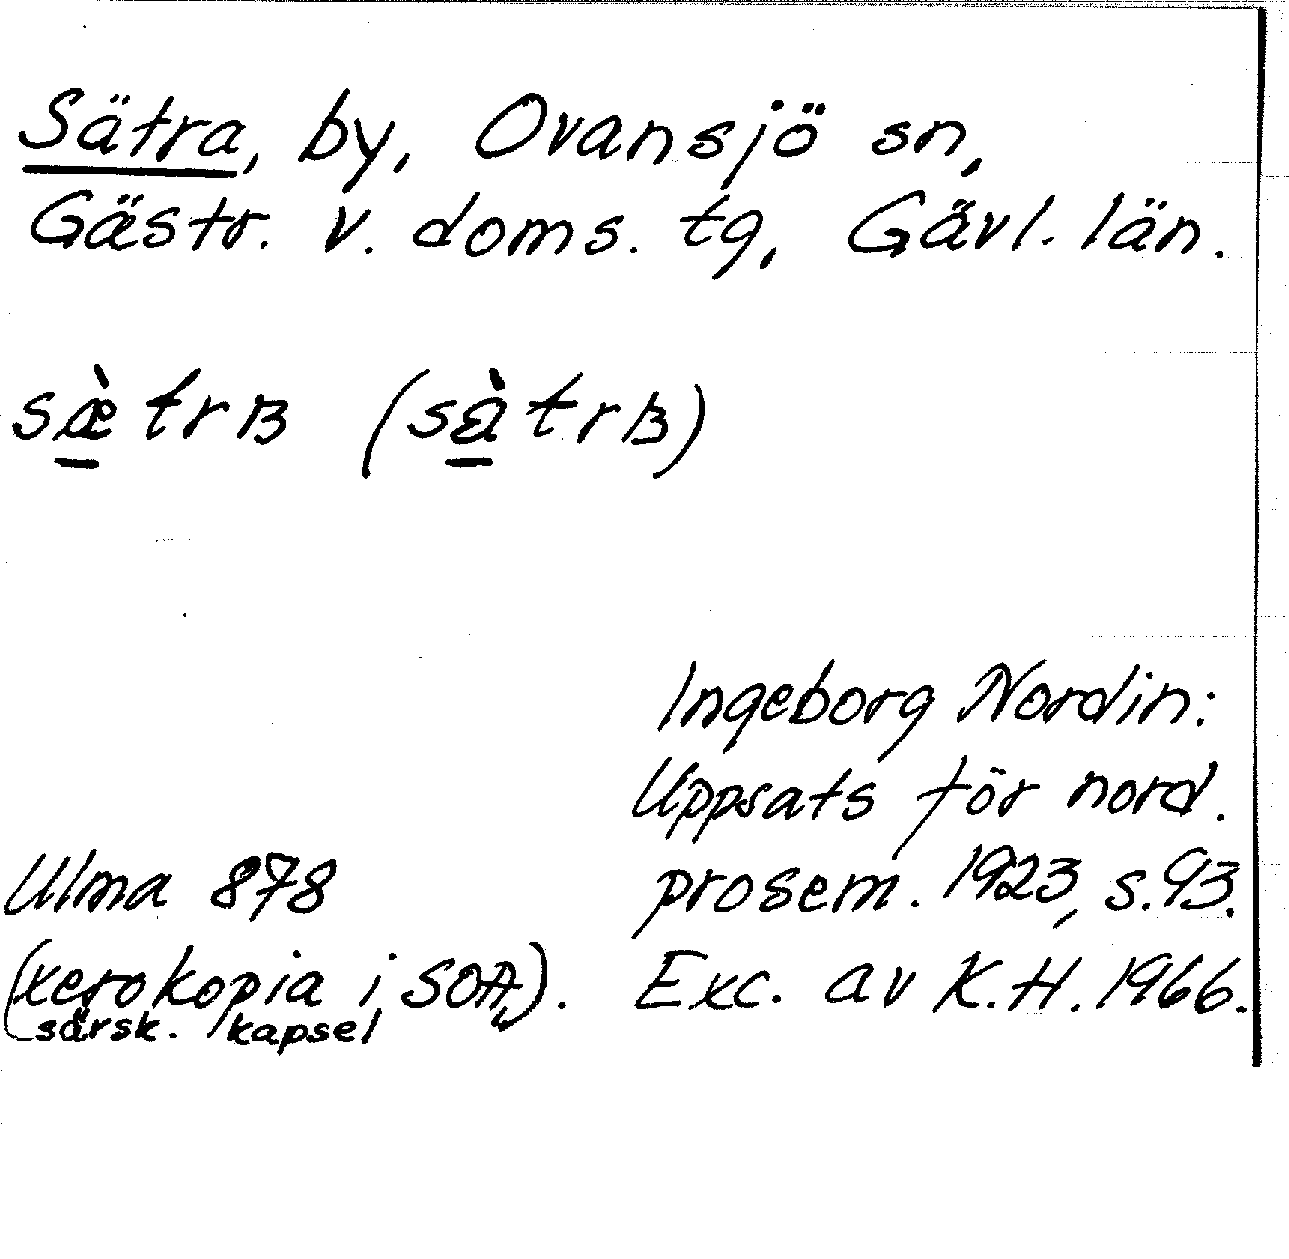 Sätra, by, Ovansjö sn,
Gästr. v. doms. tg, Gävl. län.
sæ̱̀trʙ (sà̱trʙ)
Ingeborg Nordin:
Uppsats för nord.
prosem. 1923, s. 93.
Exc. av K.H. 1966.
Ulma 878
(xerokopia i SOA,
särsk. kapsel).